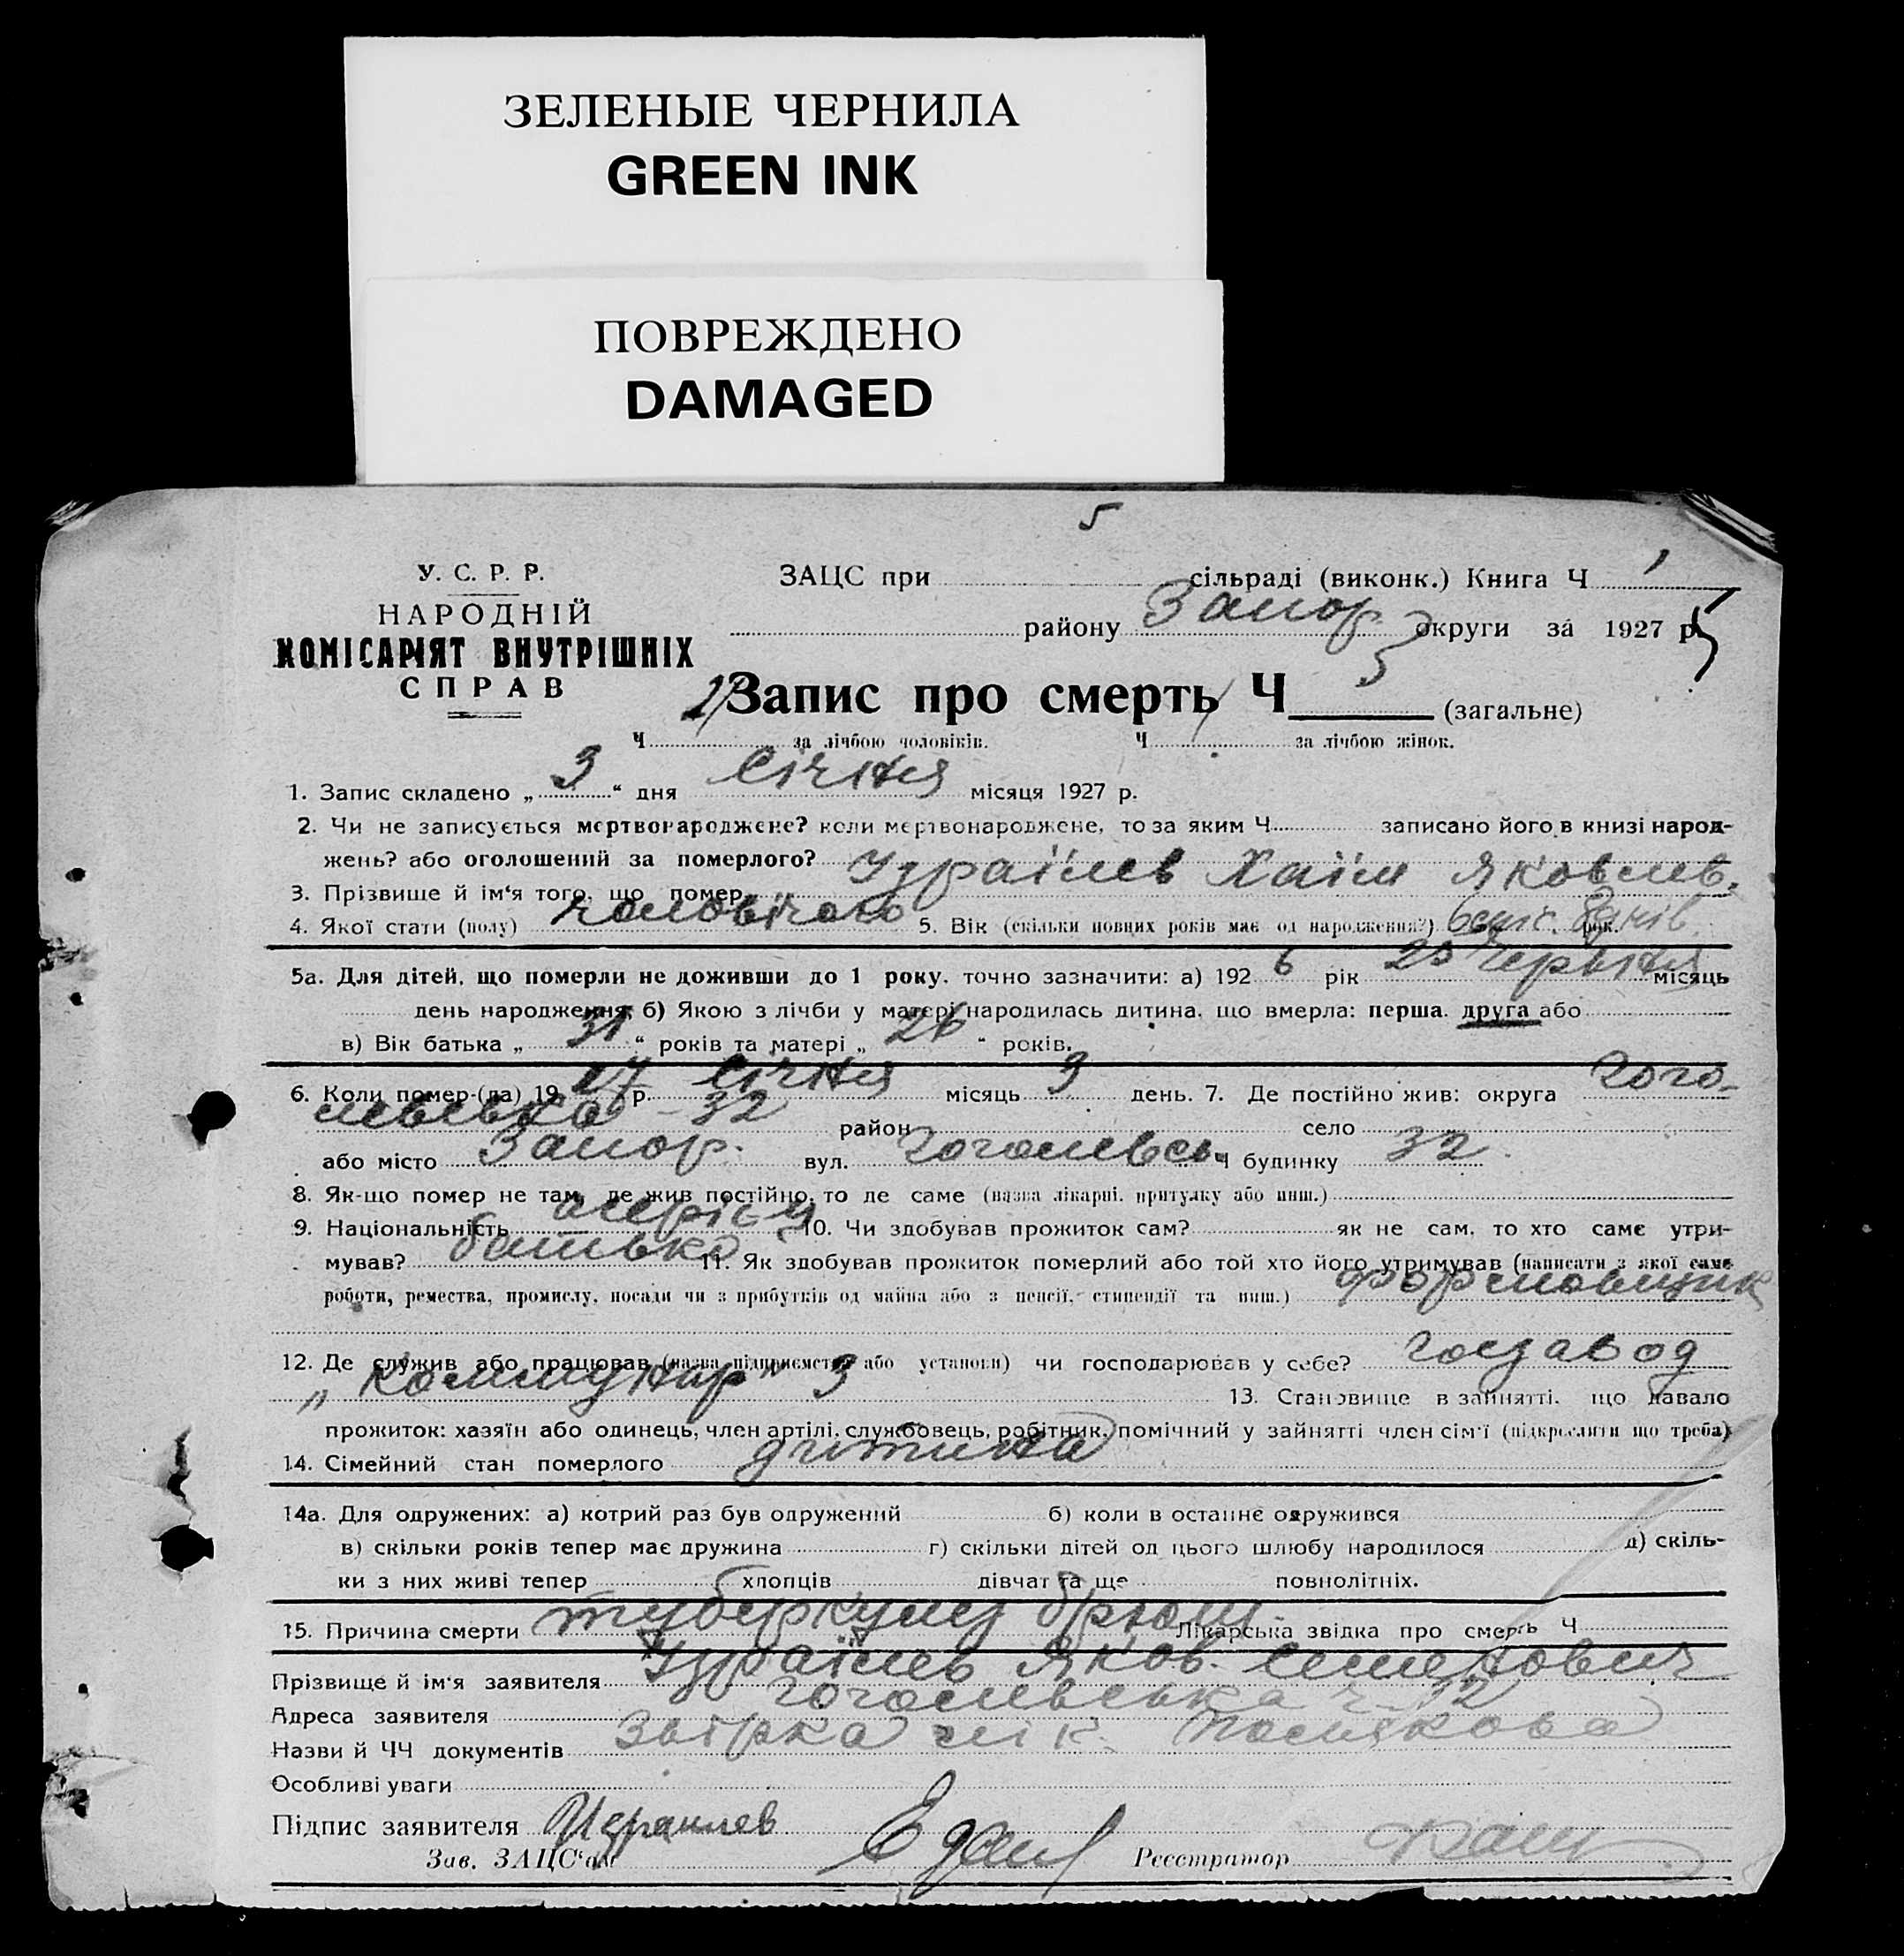 ЗЕЛЕНЫЕ ЧЕРНИЛА
GREEN INK
ПОВРЕЖДЕНО
DAMAGED
5
У. С. Р. Р.
НАРОДНІЙ
КОМІСАРІЯТ ВНУТРІШНІХ
СПРАВ
ЗАЦС при сільраді (виконк.) Книга Ч 1
району Запор. округи за 1927 р. 5
Запис про смерть Ч 5 (загальне)
Ч за лічбою чоловіків. Ч за лічбою жінок.
1. Запис складено „ 3 “ дня Січня місяця 1927 р.
2. Чи не записується мертвонароджене? коли мертвонароджене, то за яким Ч. записано його в книзі народ-
жень? або оголошений за померлого?
3. Прізвище й ім'я того, що помер Ізраїлев Хаїм Яковлев.
4. Якої стати (полу) чоловічого 5. Вік (скільки повних років має од народження?) 6 міс. днів. рок.
5а. Для дітей, що померли не доживши до 1 року, точно зазначити: а) 192 6 рік 25 Червня місяць
день народження; б) Якою з лічби у матері народилась дитина, що вмерла: перша, друга або
в) Вік батька „ 31 “ років та матері „ 26 “ років.
6. Коли помер-(ла) 19 27 р. Січня місяць 3 день. 7. Де постійно жив: округа Гого-
левська - 32 район село
або місто Запор. вул. Гоголевсь. Ч будинку 32
8. Як-що помер не там, де жив постійно, то де саме (назва лікарні, притулку або инш.)
9. Національність 10. Чи здобував прожиток сам? як не сам, то хто саме утри-
мував? батько 11. Як здобував прожиток померлий або той хто його утримував (написати з якої саме
роботи, ремества, промислу, посади чи з прибутків од майна або з пенсії, стипендії та инш.) формовщик
12. Де служив або працював (назва підприємства або установи) чи господарював у себе? Госзавод
„ Коммунар “ 3 13. Становище в зайнятті, що давало
прожиток: хазяїн або одинець, член артілі, службовець, робітник, помічний у зайнятті член сім'ї (підкреслити що треба)
14. Сімейний стан померлого дитина
14а. Для одружених: а) котрий раз був одружений б) коли в останнє одружився
в) скільки років тепер має дружина г) скільки дітей од цього шлюбу народилося д) скіль-
ки з них живі тепер хлопців дівчат та ще повнолітніх.
15. Причина смерти туберкулез брюш. Лікарська звідка про смерть Ч
Прізвище й ім'я заявителя Ізраїлев Яков.
Адреса заявителя Гоголевська ч. 32
Назви й ЧЧ документів лік. Полякова
Особливі уваги
Підпис заявителя Израилев
Зав. ЗАЦС'ом Реєстратор